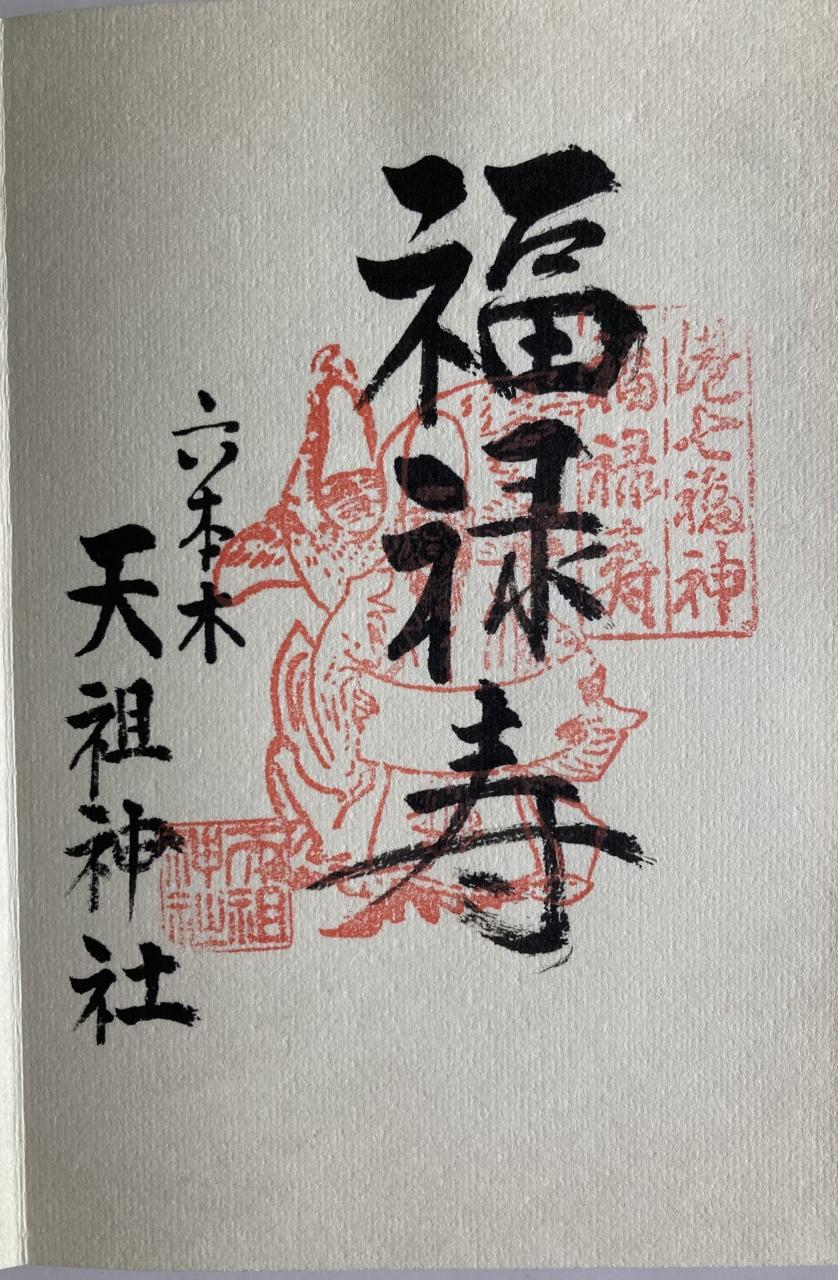 港七福神
福禄寿
福禄寿
六本木
天祖神社
天祖
神社